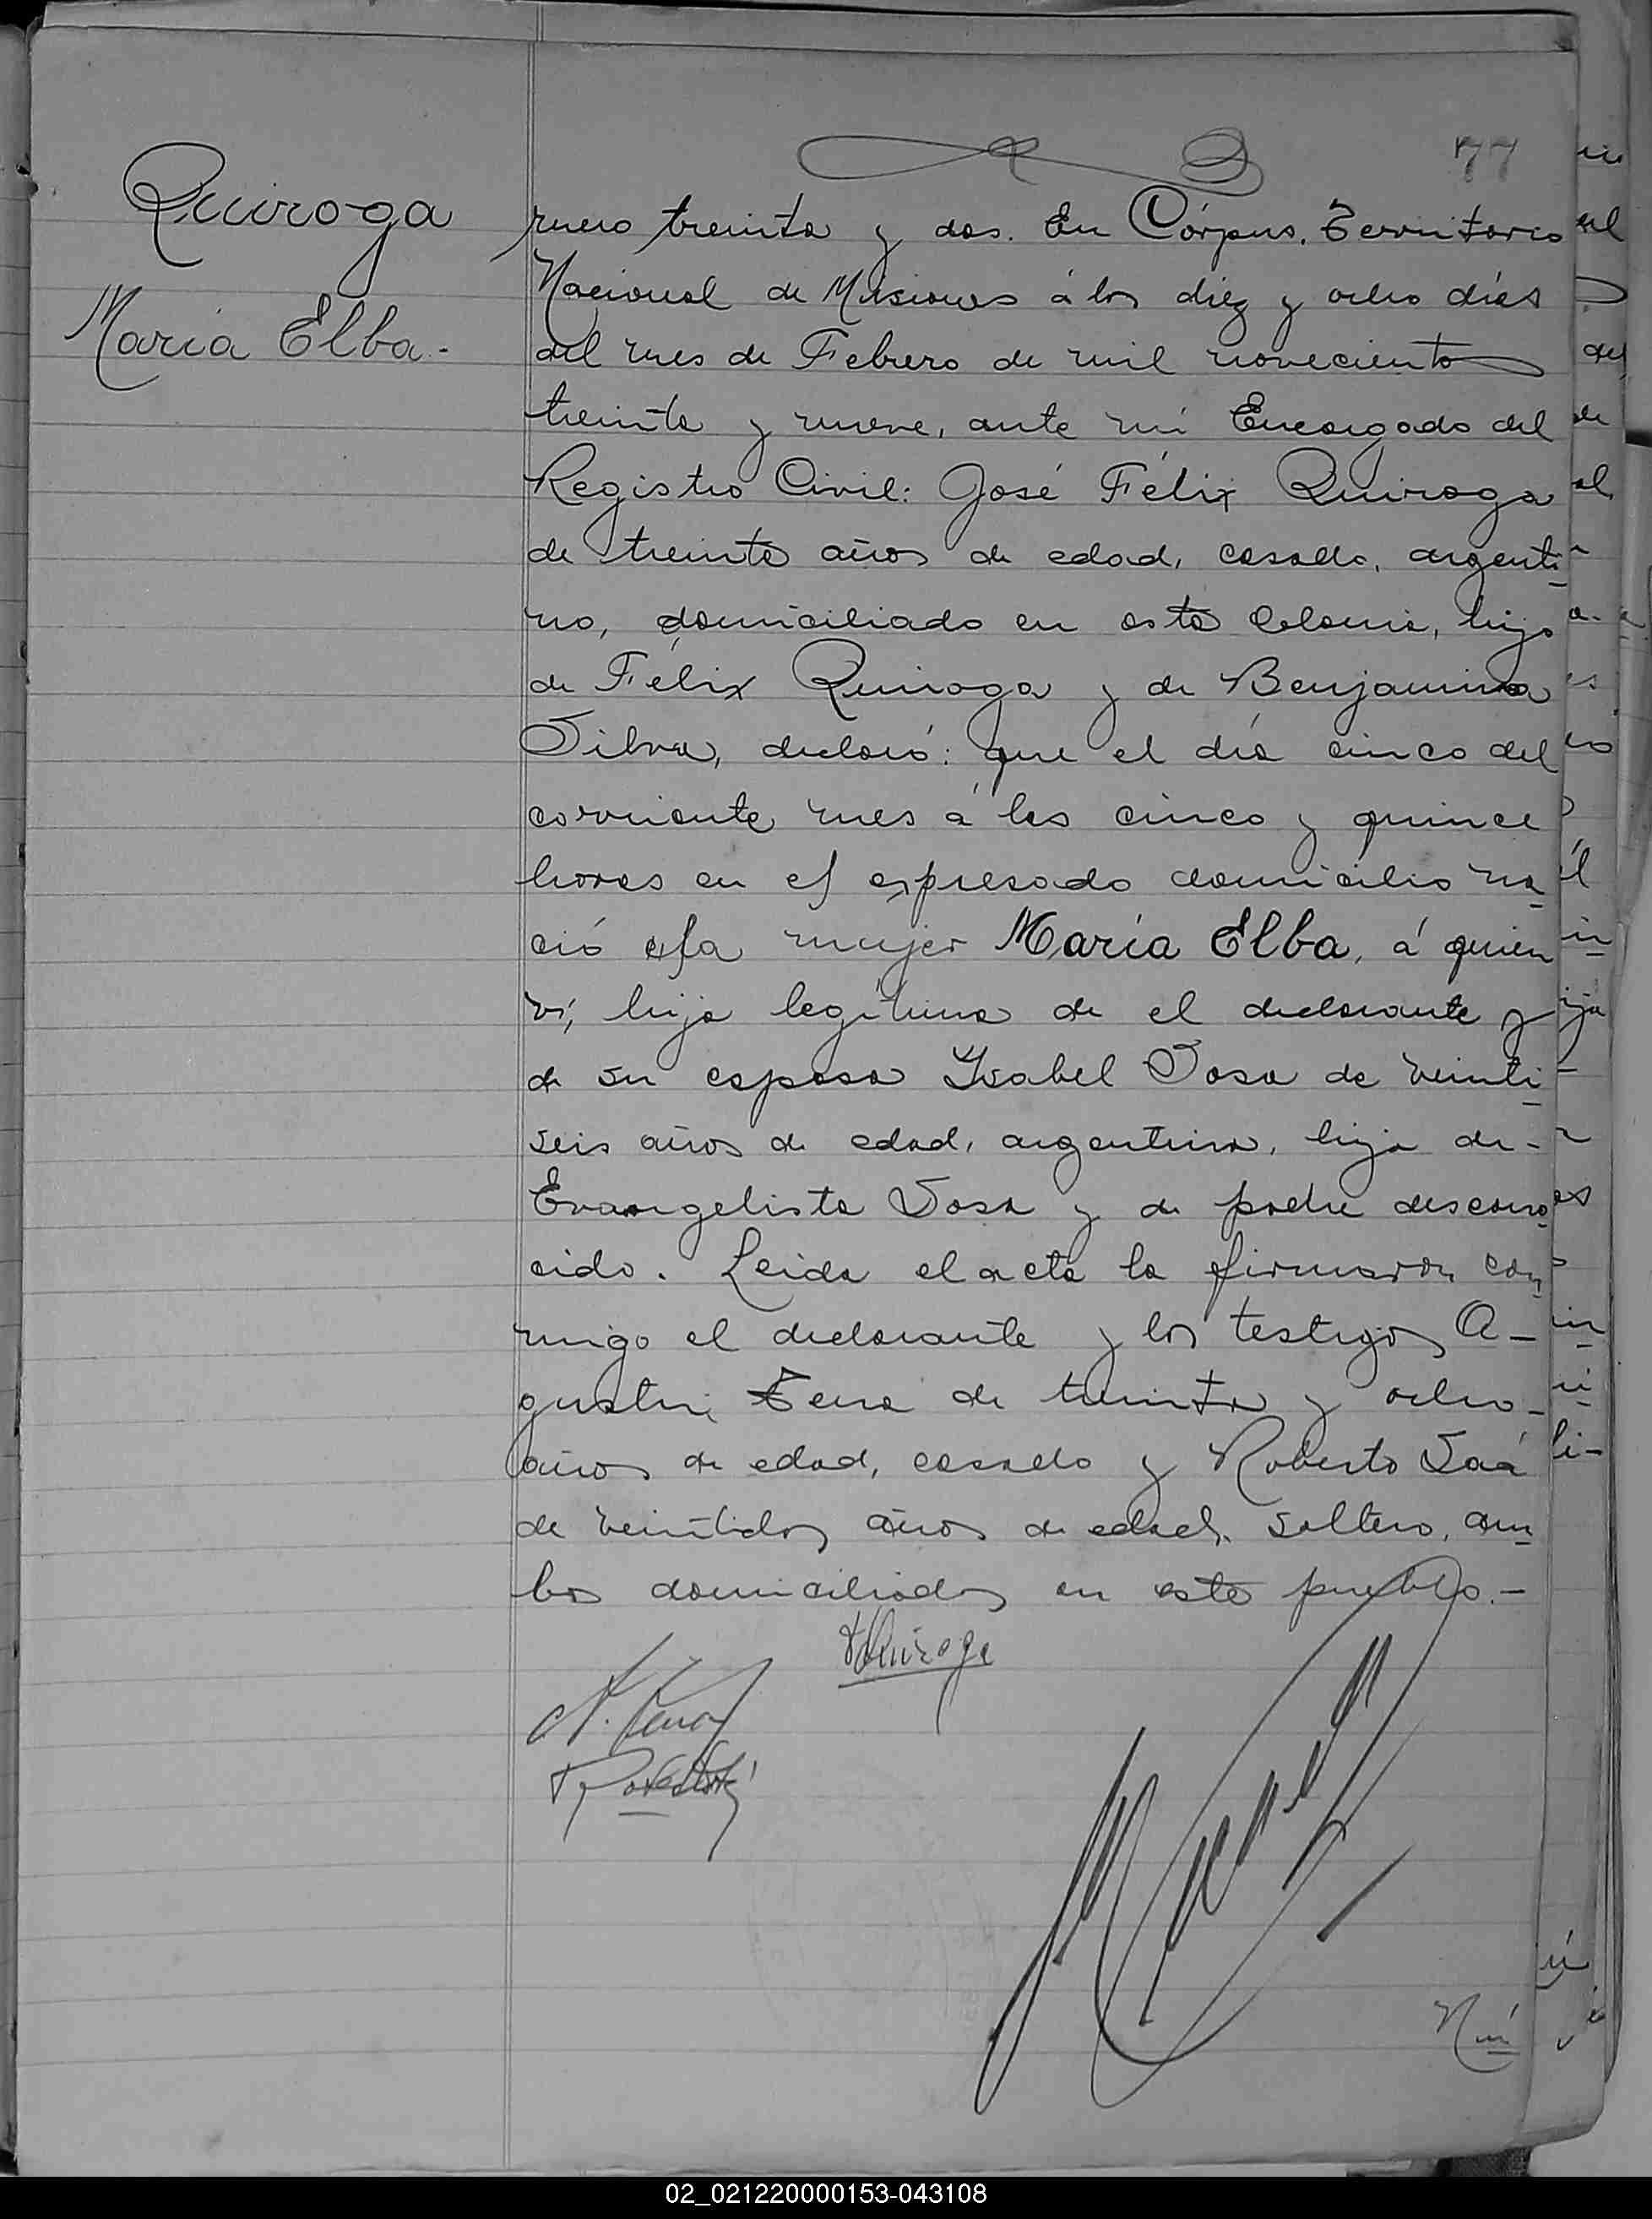 77
Quiroga
María Elba.-
mero treinta y dos. En Córpus, Territorio
Nacional de Misiones á los diez y ocho días
del mes de Febrero de mil novecientos
treinta y nueve, ante mí Encargado del
Registro Civil: José Félix Quiroga
de treinta años de edad, casado, argenti-
no, domiciliado en esta Colonia, hijo
de Félix Quiroga y de Benjamina
Silva, declaró: que el día cinco del
corriente mes á las cinco y quince
horas en el expresado domicilio na-
ció la mujer María Elba, á quien
ví, hija legítima de el declarante y
de su esposa Ysabel Sosa de veinti-
seis años de edad, argentina, hija de-
Evangelista Sosa y de padre descono-
cido. Leida el acta la firmaron con-
migo el declarante y los testigos A-
gustin Tena de treinta y ocho-
años de edad, casado y Roberto Saá
de veintidos años de edad, soltero, am-
bos domiciliados en este pueblo.-
Quiroga
A. Tena
Nú
02_021220000153-043108